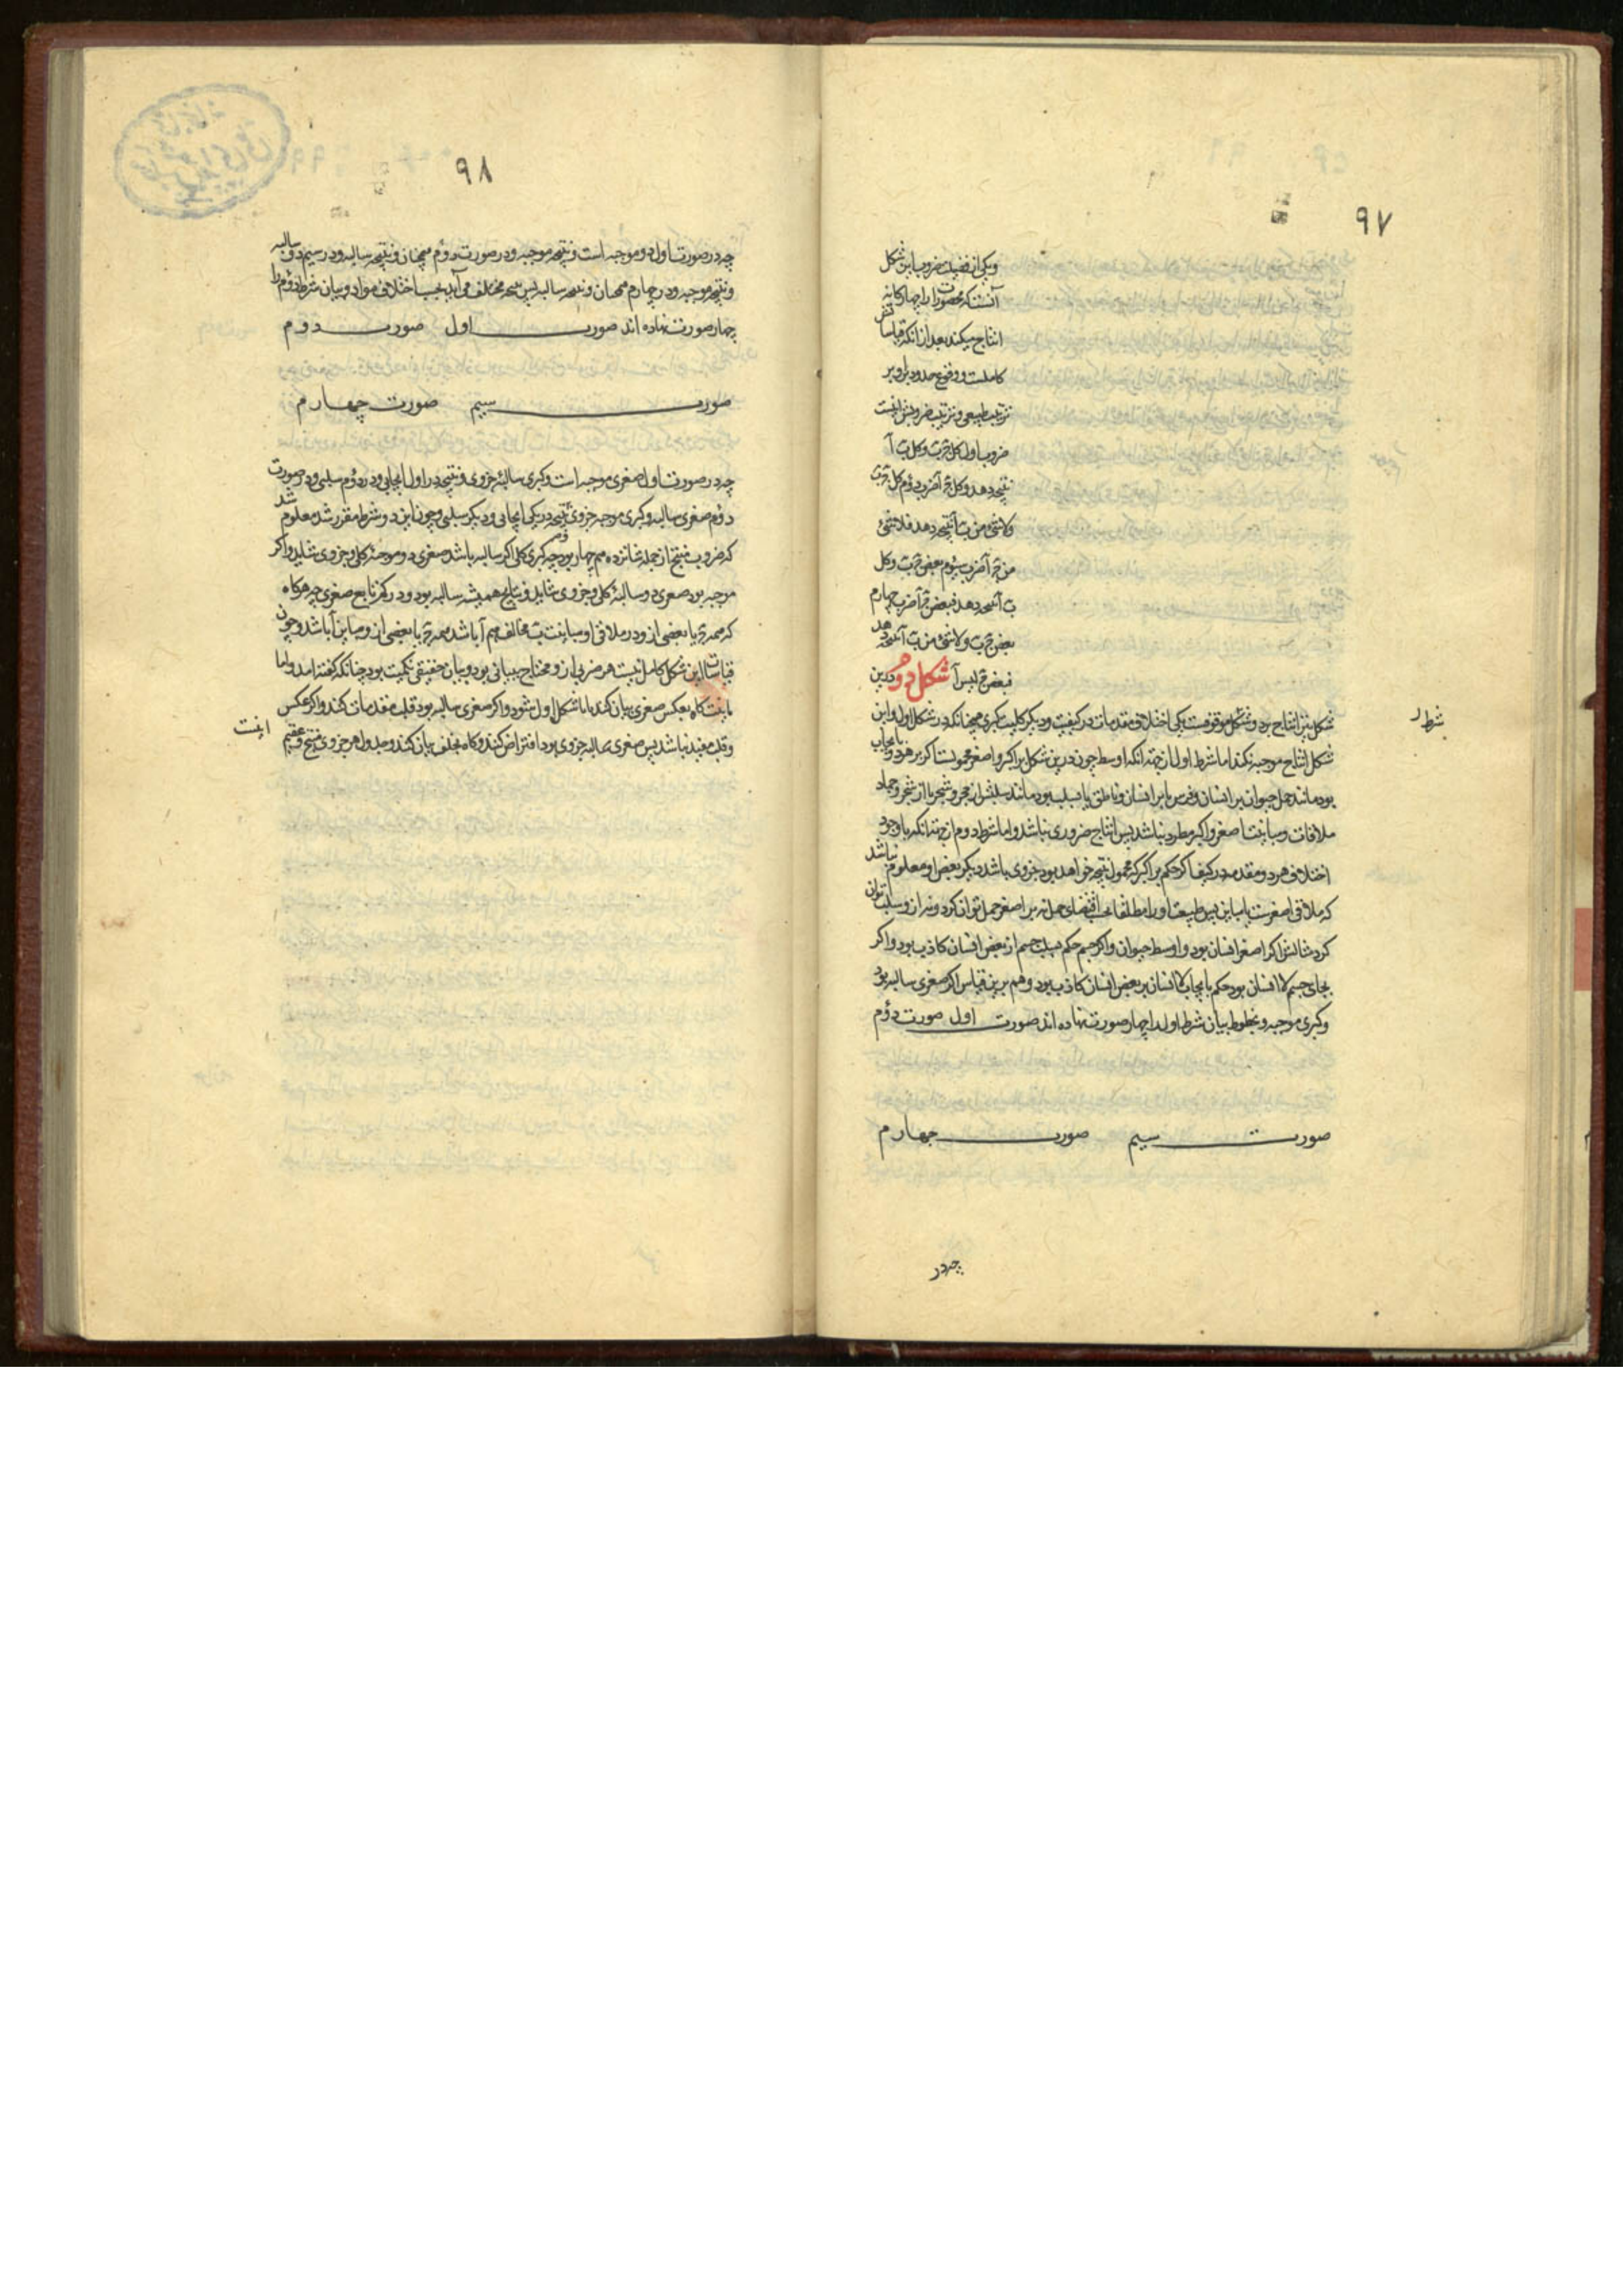 ۹۷
ویکی از فضیلت ضروب این شکل
آنست که محصورات را چهارگانه
انتاج میکند بعد از انکه قیاساتش
کاملست و وقوع حدود بل وبر
ترتیب طبیعی و ترتیب ضروبش اینست
ضرب اول کل ج ب وکل ب آ
نتیجه دهد وکل ج آ ضرب دوم کل ج ب
ولاشئ من ب آ نتیجه دهد فلاشئ
من ج آ ضرب سیوم بعض ج ب وکل
ب آ نتیجه دهد فبعض ج آ ضرب چهارم
بعض ج ب ولاشئ من ب آ نتیجه دهد
فبعض ج لیس آ شکل دوم و درین
شکل نیز انتاج بر دو شکل موقوفست یکی اختلاف مقدمات در کیفیت و دیگر کلیت کبری همچنانکه در شکل اول و این
شرط
شکل انتاج موجبه نکند اما شرط اول از جهت انکه اوسط چون درین شکل بر اکبر و اصغر محمولست اگر بر هر دو بایجاب
بود مانند حمل حیوان بر انسان و فرس یا بر انسان و ناطق یا بسلب بود مانند سلبش از حجر و شجر یا از شجر و جماد
ملاقات و مباینت اصغر و اکبر مطرد نباشد پس انتاج ضروری نباشد و اما شرط دوم از جهت انکه با وجود
اختلاف هر دو مقدمه در کیف اگر حکم بر اکبر که محمول نتیجه خواهد بود جزوی باشد دیگر بعض او معلوم نباشد
که ملاقی اصغرست یا مباین پس طبیعت او را مطلقا بحسب اقتضای حمل نه بر اصغر حمل توان کرد و نه از و سلب توان
کرد مثالش اگر اصغر انسان بود و اوسط حیوان و اکبر جسم حکم بسلب جسم از بعض انسان کاذب بود و اگر
بجای جسم لا انسان بود حکم بایجاب لا انسان بر بعض انسان کاذب بود و هم برین قیاس اگر صغری سالبه بود
و کبری موجبه و بخطوط بیان شرط اول را چهار صورت نهاده اند صورت اول صورت دوم
صورت سیم صورت چهارم
چه در
۹۸
چه در صورت اول دو موجبه است و نتیجه موجبه و در صورت دوم همچنان و نتیجه سالبه و در سیم دو سالبه
و نتیجه موجبه و در چهارم همچنان و نتیجه سالبه پس نتیجه مختلف می آید بحسب اختلاف مواد و بیان شرط دوم را
چهار صورت نهاده اند صورت اول صورت دوم
صورت سیم صورت چهارم
چه در صورت اول صغری موجبه است و کبری سالبه جزوی و نتیجه در اول ایجابی و در دوم سلبی و در صورت
دوم صغری سالبه و کبری موجبه جزوی و نتیجه در یکی ایجابی و دیگر سلبی و چون این دو شرط مقرر شد معلوم شد
که ضروب منتج از جمله شانزده هم چهار بود چه کبری کلی اگر سالبه باشد صغری دو موجبه کلی و جزوی شاید و اگر
موجبه بود صغری دو سالبه کلی و جزوی شاید و نتایج همیشه سالبه بود و در کم تابع صغری چه هرگاه
که همه ج یا بعضی از و در ملاقی او مباینت ب مخالف هم آ باشد همه ج یا بعضی از و مباین آ باشد و چون
قیاسات این شکل کامل نیست هر ضربی از و محتاج ببیانی بود و بیان حقیقی نکیت بود چنانکه گفته امد و اما
باینت گاه بعکس صغری بیان کند یا با شکل اول شود و اگر صغری سالبه بود قلب مقدمات کند و اگر عکس
و قلب مفید نباشد پس صغری سالبه جزوی بود افتراض کند و گاه بخلف بیان کند و جدول هر جزوی منتج و عقیم
اینست